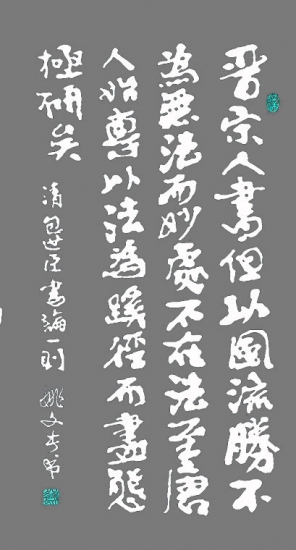 晋宋人書但以風流勝不
為無法而妙處不在法至唐
人始專以法為蹊徑而盡態
極妍矣
清包世臣書論一則 姚文書